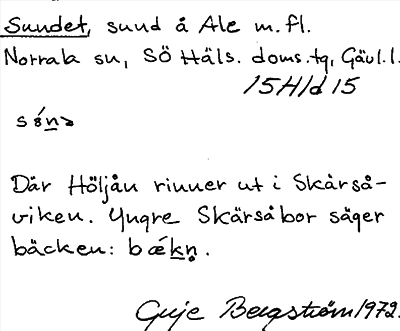 Sundet, sund å Ale m.fl.
Norrala sn, SÖ Häls. doms.tg, Gävl.l.
15H1d15
Där Höljån rinner ut i Skärså-
viken. Yngre Skärsåbor säger
bäcken:
Guje Bergström 1972.